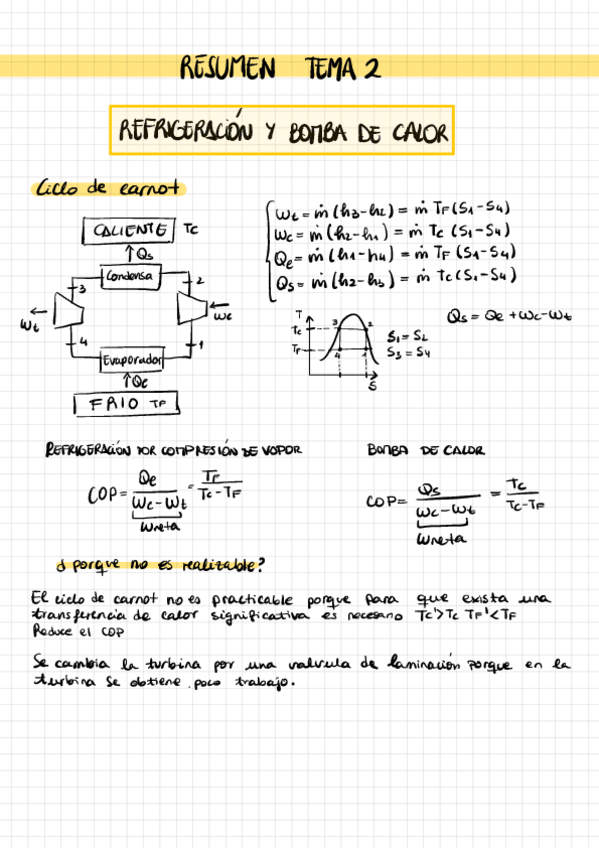 RESUMEN TEMA 2
REFRIGERACIÓN Y BOMBA DE CALOR
Ciclo de carnot
CALIENTE TC
Qs
Condensa
3
2
Wt
Wc
4
1
Evaporador
Qe
FRIO TF
Wt = ṁ (h3-h2) = ṁ TF (S1-S4)
Wc = ṁ (h2-h1) = ṁ Tc (S1-S4)
Qe = ṁ (h1-h4) = ṁ TF (S1-S4)
Qs = ṁ (h2-h3) = ṁ tc (S1-S4)
T
Tc
TF
3
2
4
1
S
S1 = S2
S3 = S4
Qs = Qe + Wc - Wt
REFRIGERACIÓN POR COMPRESIÓN DE VAPOR
COP = Qe / (Wc - Wt) = TF / (Tc - TF)
Wneta
BOMBA DE CALOR
COP = Qs / (Wc - Wt) = Tc / (Tc - TF)
Wneta
¿porque no es realizable?
El ciclo de carnot no es practicable porque para que exista una
transferencia de calor significativa es necesario Tc'>Tc TF'<TF
Reduce el COP
Se cambia la turbina por una valvula de laminación porque en la
turbina se obtiene poco trabajo.